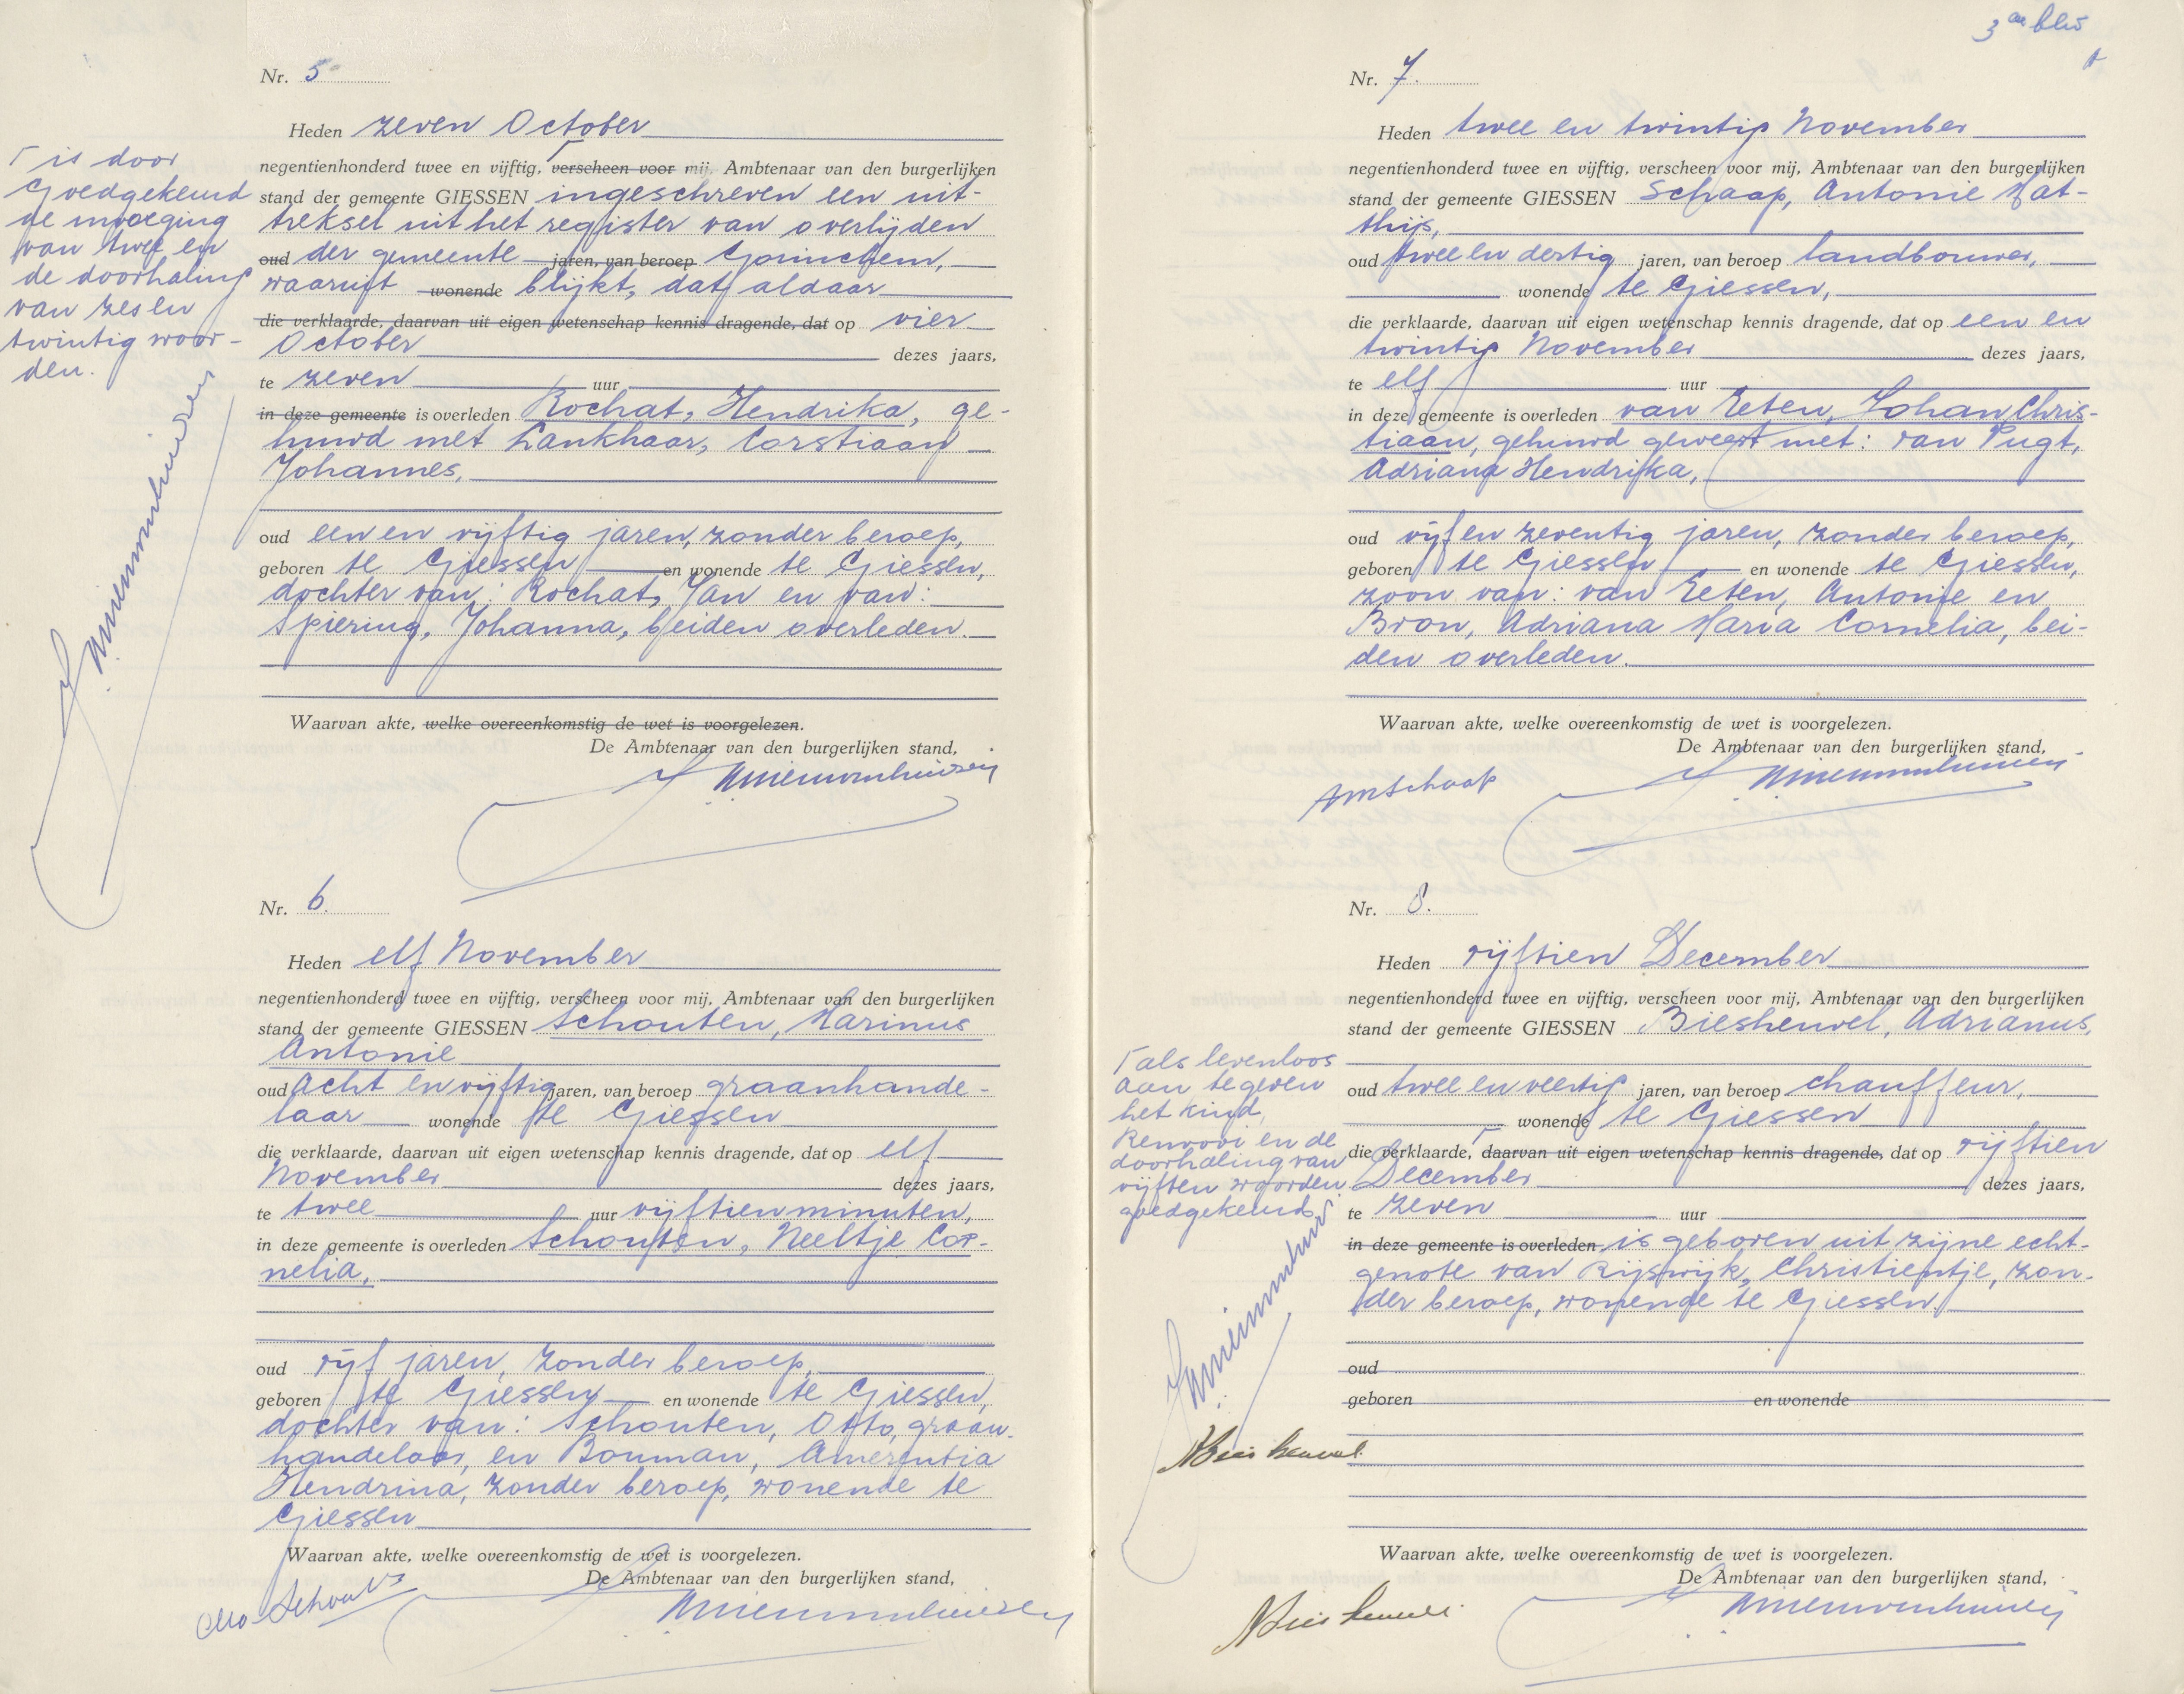 Nr. 5
Heden zeven October
negentienhonderd twee en vijftig, ⌈ verscheen voor mij, Ambtenaar van den burgerlijken
stand der gemeente GIESSEN ingeschreven een uit-
treksel uit het register van overlijden
oud der gemeente jaren, van beroep Gorinchem,
waaruit wonende blijkt, dat aldaar
die verklaarde, daarvan uit eigen wetenschap kennis dragende, dat op vier
October dezes jaars,
te zeven uur
in deze gemeente is overleden Rochat, Hendrika, ge-
huwd met Lankhaar, Corstiaan
Johannes,
oud een en vijftig jaren, zonder beroep,
geboren te Giessen en wonende te Giessen,
dochter van: Rochat, Jan en van:
Spiering, Johanna, beiden overleden.
Waarvan akte, welke overeenkomstig de wet is voorgelezen.
De Ambtenaar van den burgerlijken stand,
⌈ is door
Goedgekeurd
de invoeging
van twee en
de doorhaling
van zes en
twintig woor-
den.
Nr. 6.
Heden elf November
negentienhonderd twee en vijftig, verscheen voor mij, Ambtenaar van den burgerlijken
stand der gemeente GIESSEN Schouten, Marinus
Antonie
oud acht en vijftig jaren, van beroep graanhande-
laar wonende te Giessen
die verklaarde, daarvan uit eigen wetenschap kennis dragende, dat op elf
November dezes jaars,
te twee uur vijftien minuten,
in deze gemeente is overleden Schouten, Neeltje Cor-
nelia,
oud vijf jaren, zonder beroep,
geboren te Giessen en wonende te Giessen,
dochter van: Schouten, Otto, graan-
handelaar, en Bouman, Amerentia
Hendrina, zonder beroep, wonende te
Giessen
Waarvan akte, welke overeenkomstig de wet is voorgelezen.
De Ambtenaar van den burgerlijken stand,
3de blad
Nr. 7.
Heden twee en twintig November
negentienhonderd twee en vijftig, verscheen voor mij, Ambtenaar van den burgerlijken
stand der gemeente GIESSEN Schaap, Antonie Mat-
thijs,
oud twee en dertig jaren, van beroep landbouwer,
wonende te Giessen,
die verklaarde, daarvan uit eigen wetenschap kennis dragende, dat op een en
twintig November dezes jaars,
te elf uur
in deze gemeente is overleden van Eeten, Johan Chris-
tiaan, gehuwd geweest met: van Pugt,
Adriana Hendrika,
oud vijf en zeventig jaren, zonder beroep,
geboren te Giessen en wonende te Giessen,
zoon van: van Eeten, Antonie en
Bron, Adriana Maria Cornelia, bei-
den overleden.
Waarvan akte, welke overeenkomstig de wet is voorgelezen.
De Ambtenaar van den burgerlijken stand,
AMSchaap
Nr. 8.
Heden vijftien December
negentienhonderd twee en vijftig, verscheen voor mij, Ambtenaar van den burgerlijken
stand der gemeente GIESSEN Biesheuvel, Adrianus,
oud twee en veertig jaren, van beroep chauffeur,
wonende te Giessen
die verklaarde, ⌈ daarvan uit eigen wetenschap kennis dragende, dat op vijftien
December dezes jaars,
te zeven uur
in deze gemeente is overleden, is geboren uit zijne echt-
genote van Rijswijk, Christientje, zon-
der beroep, wonende te Giessen
oud
geboren en wonende
Waarvan akte, welke overeenkomstig de wet is voorgelezen.
De Ambtenaar van den burgerlijken stand,
⌈ als levenloos
aan te geven
het kind,
Renvooi en de
doorhaling van
vijftien woorden
goedgekeurd